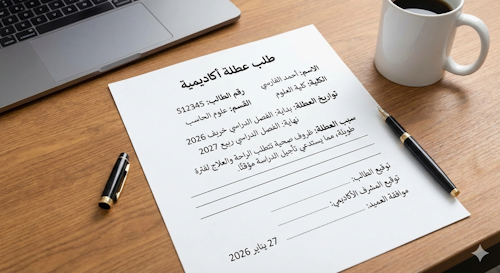 طلب عطلة أكاديمية
الاسم: أحمد الفارسي رقم الطالب: S12345
الكلية: كلية العلوم القسم: علوم الحاسب
تواريخ العطلة: بداية: الفصل الدراسي خريف 2026
نهاية: الفصل الدراسي ربيع 2027
سبب العطلة: ظروف صحية تتطلب الراحة والعلاج لفترة
طويلة، مما يستدعي تأجيل الدراسة مؤقتًا.
توقيع الطالب:
توقيع المشرف الأكاديمي:
موافقة العميد:
27 يناير 2026